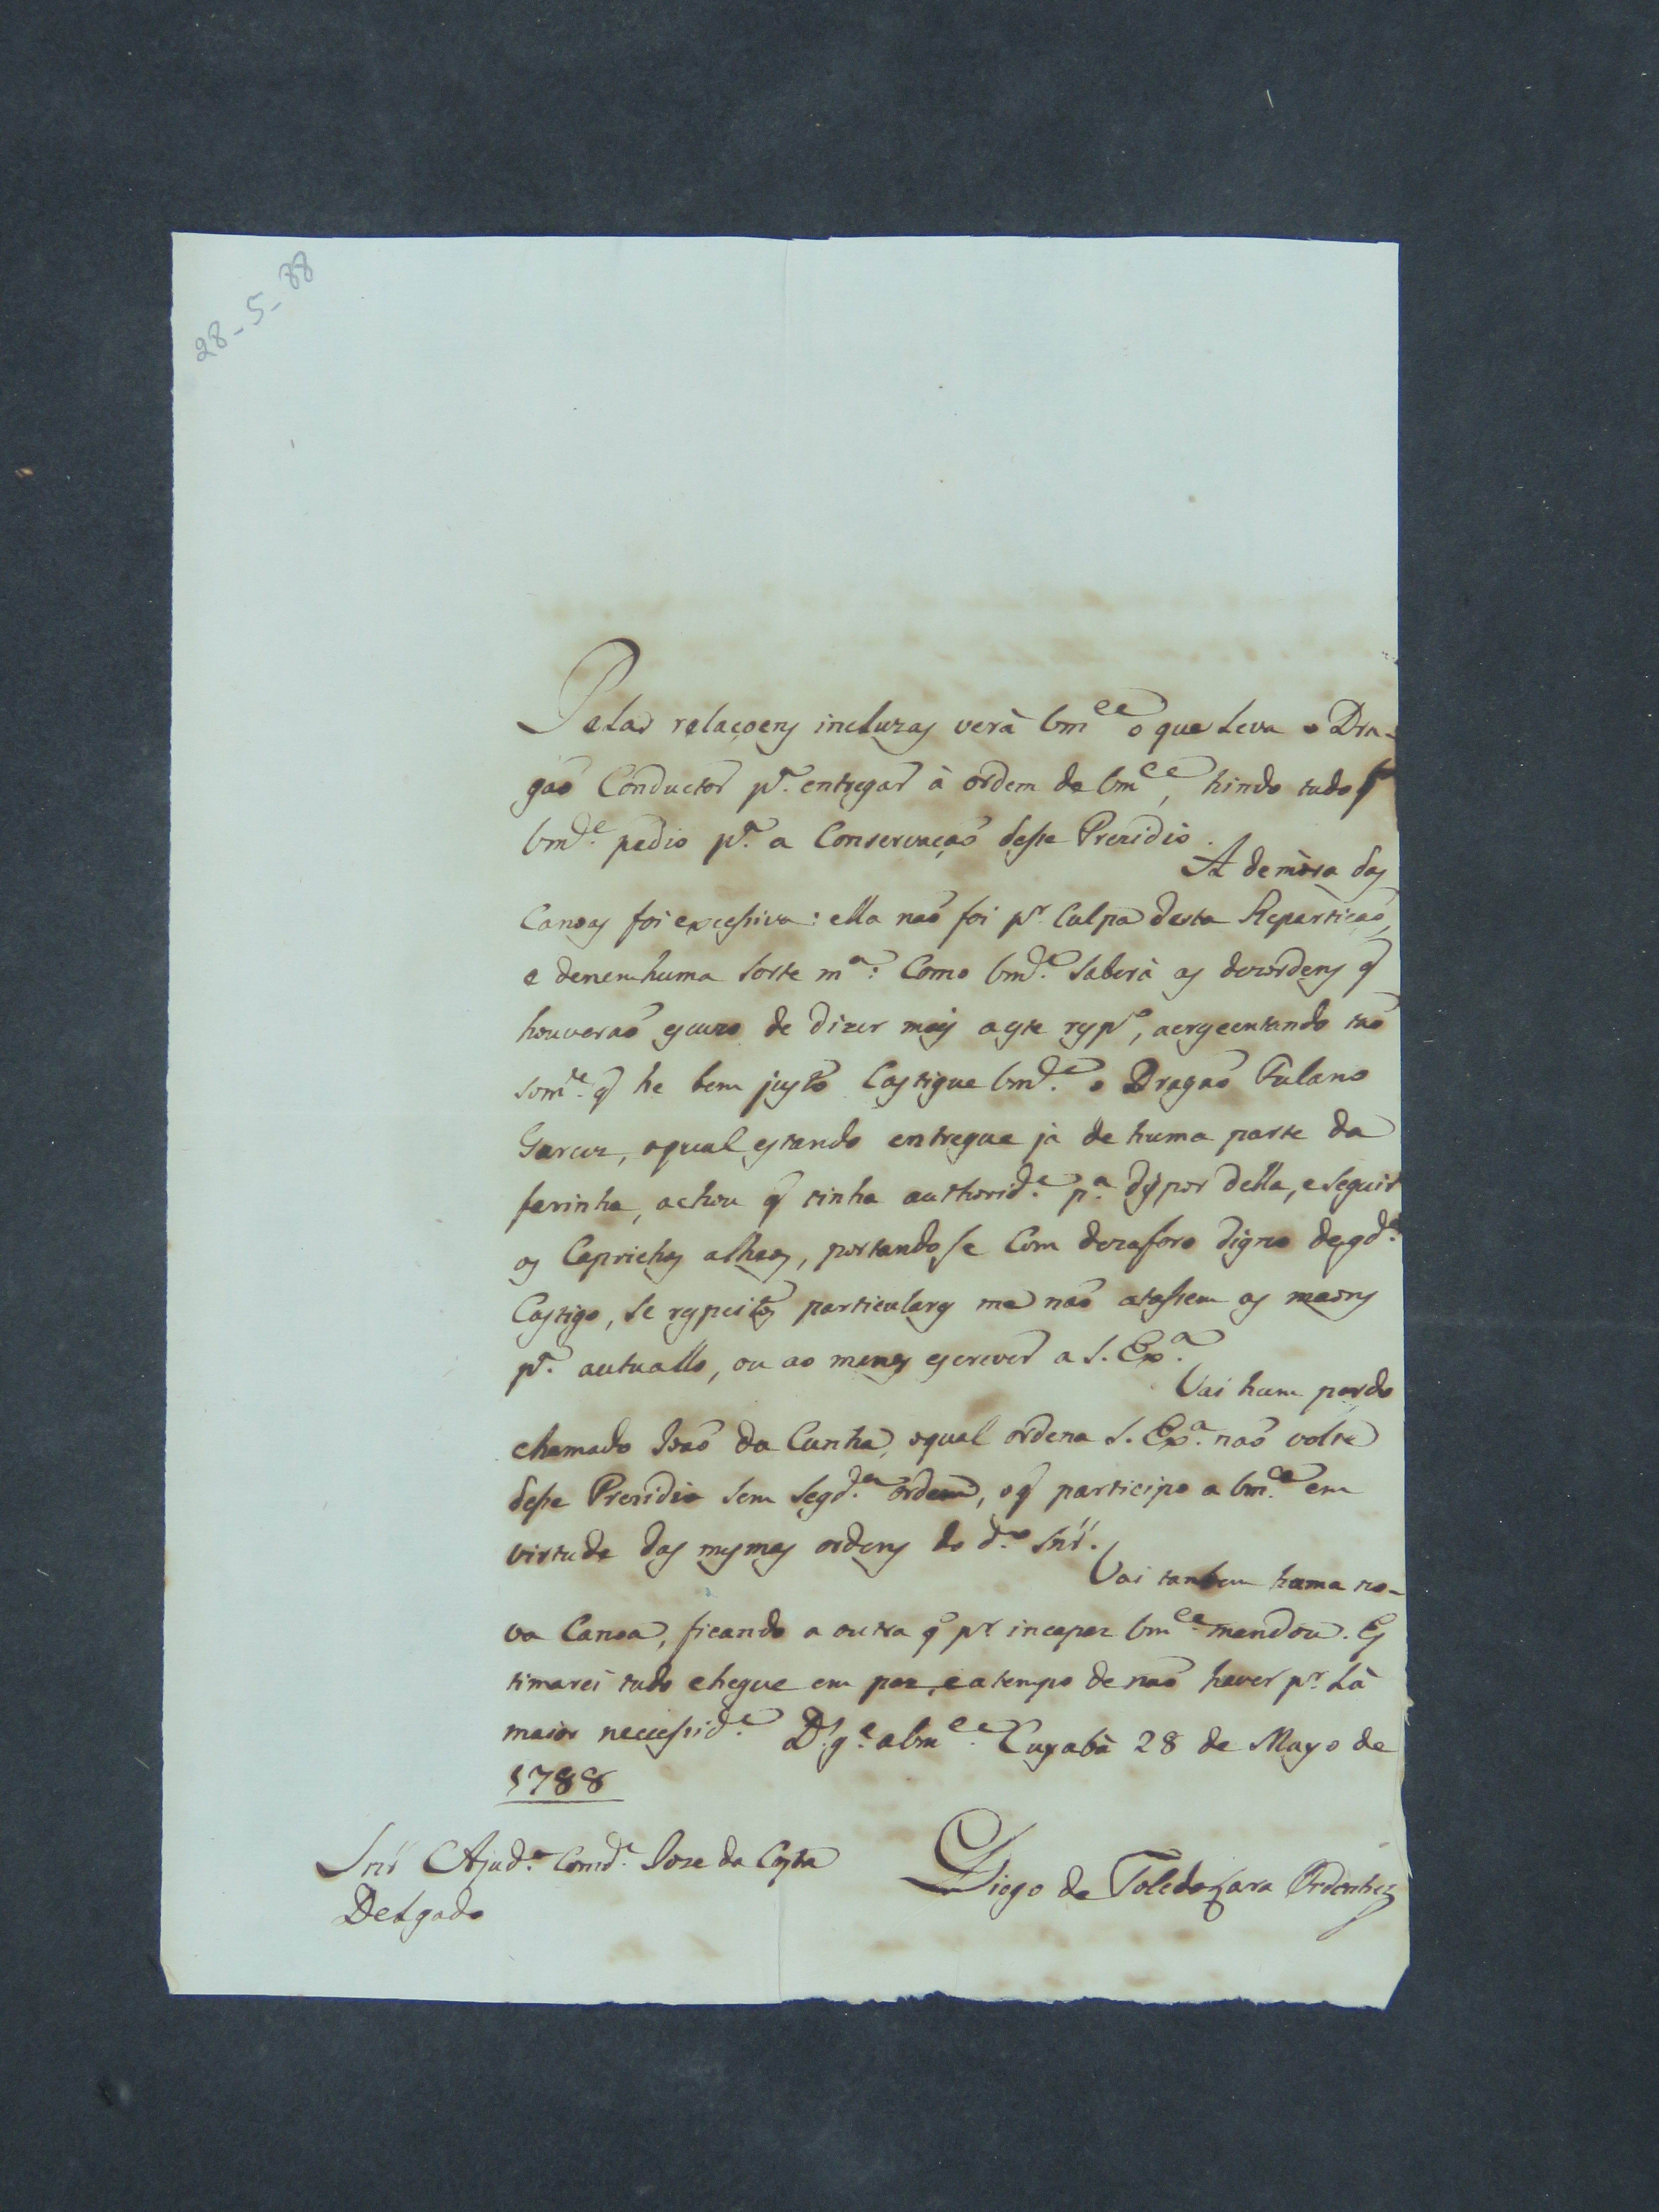 28-5-88
Pelas relaçoens incluzas verà Vm.ce o que leva o Dra-
gaõ Conductor p.ª entregar à ordem de Vm.ce, hindo tudo q̃
Vm.ce pedio p.ª a Conservaçaõ desse Prezidio.
A demòra das
Canoas foi excessiva: ella naõ foi p.r culpa desta Repartiçaõ,
e denenhuma sorte m.ª: Como Vm.ce saberà as dezordens q̃
houveraõ escuzo de dizer mais aeste resp.to, acrescentando taõ
som.te q̃ he bem justo Castigue Vm.ce o Dragaõ Fulano
Garcez, oqual estando entregue jà de huma parte da
farinha, achou q̃ tinha authorid.e p.ª dispor della, e seguir
os Caprichos alheos, portandose Com dezaforo digno degd.e
Castigo, se respeitos particulares me naõ atassem as maons
p.ª autuallo, ou ao menos escrever a S. Ex.ª
Vai hum pardo
chamado Joaõ da Cunha, oqual ordena S. Ex.ª naõ volte
desse Prezidio sem segd.ª ordem, oq̃ participo a Vm.ce em
virtude das mesmas ordens do d.º Snr.
Vai tambem huma no-
va Canoa, ficando a outra q̃ p.r incapaz Vm.ce mandou. Es
timarei tudo chegue em paz, e atempo de naõ haver p.r là
maior necessid.e D.s g.e a Vm.ce Cuyabà 28 de Mayo de
1788
Snr Ajud.e Comd.e Joze da Costa
Delgado
Diogo de Toledo Lara Ordonhez